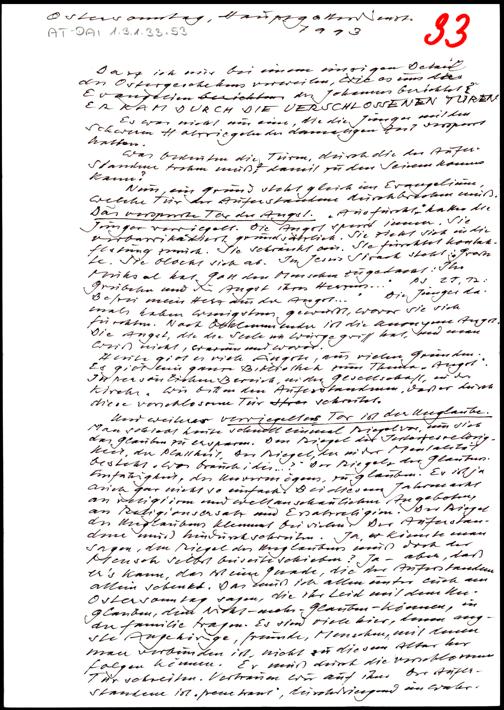 Ostersonntag, Hauptgottesdienst.
1993
33
AT-DAI 1.3.1.33.53
Darf ich nur bei einem einzigen Detail
des Ostergeschehens verweilen, wie es uns das
Evangelium des Johannes berichtet?
ER KAM DURCH DIE VERSCHLOSSENEN TÜREN
Es war nicht nur eine, die die Jünger mit den
schweren der damaligen Zeit versperrt
hatten.
Was bedeuten die Türen, durch die der Aufer-
standene muß, damit er zu den Seinen kommen
kann?
Nun, ein Grund steht gleich im Evangelium,
welche Tür der Auferstandene durchbrechen muß.
Das versperrte Tor der Angst. hatte die
Jünger verriegelt. Die Angst sperrt immer. Sie
verbarrikadiert, grundsätzlich. Sie zieht sich in die
Festung zurück. Sie schränkt ein. Sie fürchtet Kontak-
te. Sie blockt sich ab. Im Jesus Sirach steht: "Große
Mühsal hat Gott den Menschen zugedacht: Ihr
Grübeln und die Angst ihres Herzens..."
Befrei mein Herz aus der Angst..." Die Jünger da-
mals haben wenigstens gewußt, wovor sie sich
fürchten. Noch beklemmender ist die anonyme Angst.
Die Angst, die die Seele im Würgegriff hat, und man
weiß nicht, warum und wovor.
Heute gibt es viele Ängste, aus vielen Gründen.
Es gibt eine ganze Bibliothek zum Thema "Angst".
Im persönlichen Bereich, in der Gesellschaft, in der
Kirche. Wir bitten den Auferstandenen, daß er durch
diese verschlossene Tür schreitet.
Ein weiteres verriegeltes Tor ist der Unglaube.
Man schiebt heute schnell einmal Riegel vor, um sich
das Glauben zu ersparen. Den Riegel der
der Plattheit. Der Riegel, der in der Mentalität
besteht "was brauch i des...?" Der Riegel der Glaubens-
unfähigkeit, des Unvermögens, zu glauben. Es ist ja
auch gar nicht so einfach. Bei diesem Jahrmarkt
an religiösen und weltanschaulichen Angeboten,
an Religionsersatz und Ersatzreligion. Der Riegel
des Unglaubens klemmt bei vielen. Der Auferstan-
dene muß hindurchschreiten. Ja, er könnte man
sagen, den Riegel des Unglaubens muß doch der
Mensch selbst beiseiteschieben? Ja - aber, daß
er's kann, das ist eine Gnade, die der Auferstandene
allein schenkt. Das muß ich allen unter euch am
Ostersonntag sagen, die ihr Leid mit dem Un-
glauben, dem Nicht-mehr-glauben-können, in
der Familie tragen. Es sind viele hier, denen eng-
ste Angehörige, Freunde, Menschen, mit denen
man verbunden ist, nicht zu diesem Altar her
folgen können. Er muß durch die verschlossene
Tür schreiten. Vertrauen wir auf ihn. Der Aufer-
standene ist "penetrant", durchdringend im wahr-